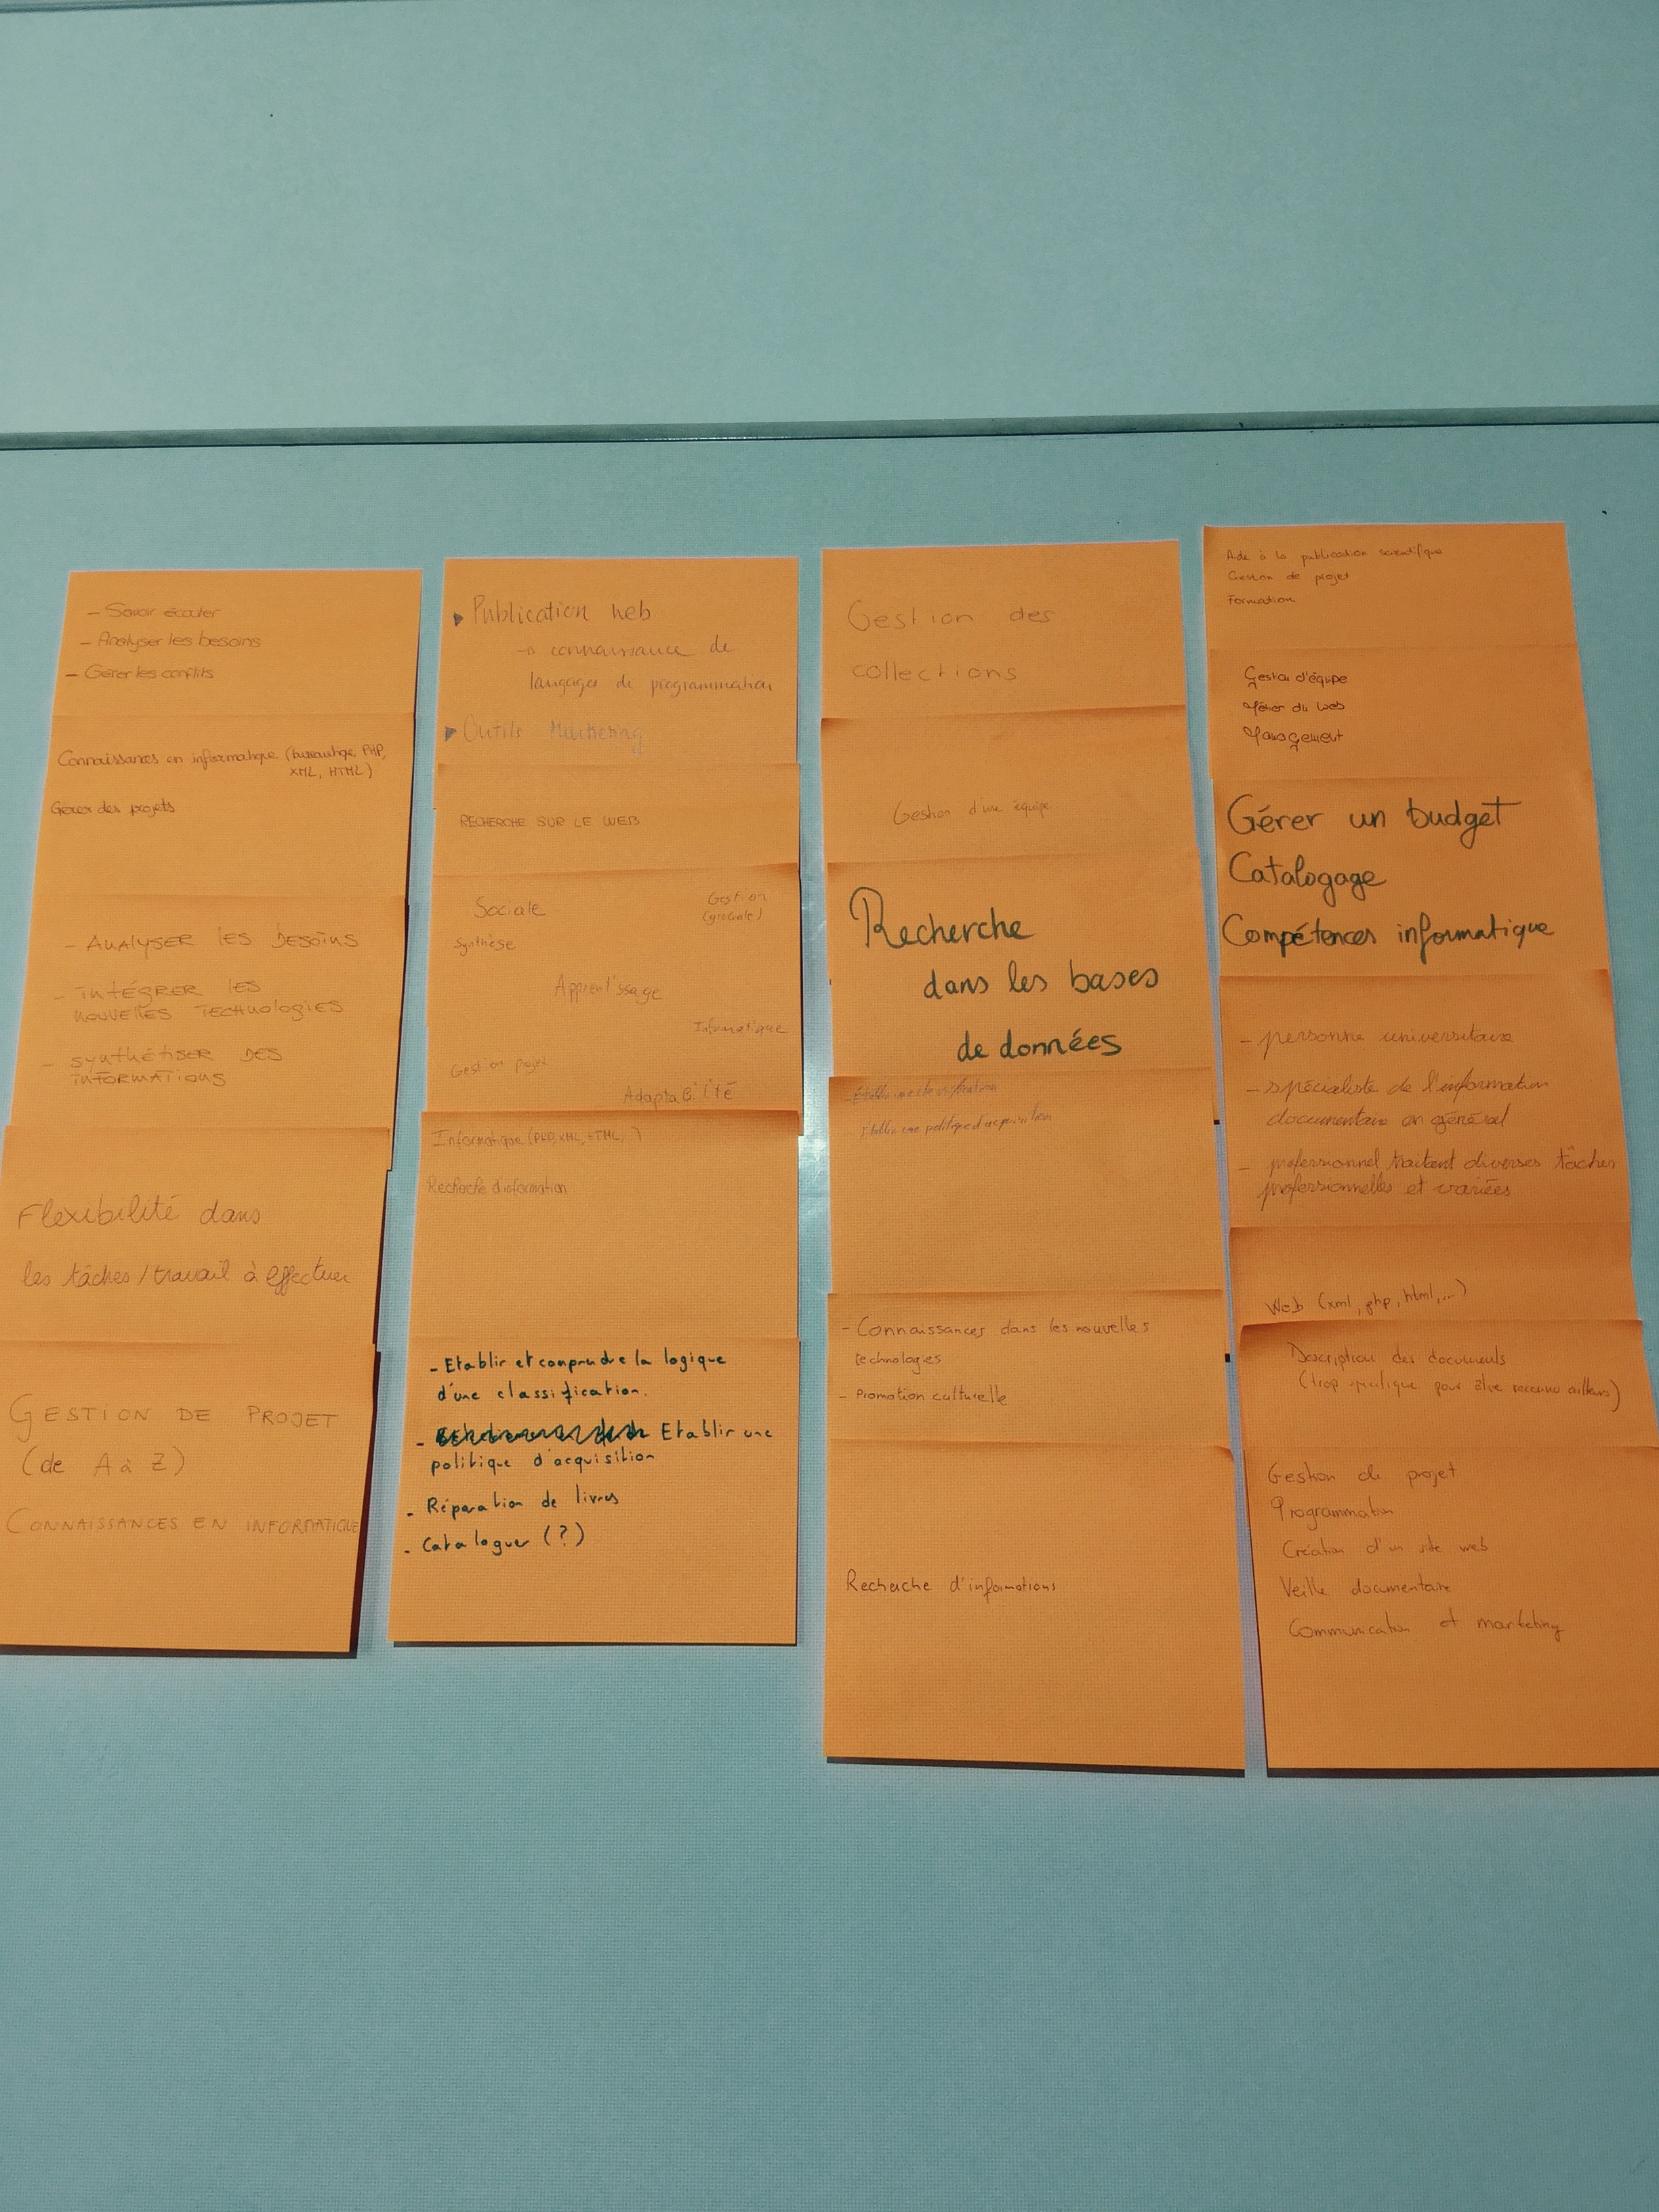 - Savoir écouter
- Analyser les besoins
- Gérer les conflits
Connaissances en informatique (bureautique, PHP,
XML, HTML)
Gérer des projets
- ANALYSER LES BESOINS
- INTÉGRER LES
NOUVELLES TECHNOLOGIES
- SYNTHÉTISER DES
INFORMATIONS
Flexibilité dans
les tâches / travail à effectuer
GESTION DE PROJET
(de A à Z)
CONNAISSANCES EN INFORMATIQUE
Publication web
→ connaissance de
langages de programmation
Outils Marketing
RECHERCHE SUR LE WEB
Sociale
Gestion
(générale)
Synthèse
Apprentissage
Informatique
Gestion projet
Adaptabilité
Informatique (PHP, XML, HTML, )
Recherche d'information
- Etablir et comprendre la logique
d'une classification.
- Etablir une
politique d'acquisition
- Réparation de livres
- Cataloguer (?)
Gestion des
collections
Gestion d'une équipe
Recherche
dans les bases
de données
- Établir une classification
- Etablir une politique d'acquisition
- Connaissances dans les nouvelles
technologies
- Promotion culturelle
Recherche d'informations
Aide à la publication scientifique
Gestion de projet
Formation
Gestion d'équipe
Métier du web
Management
Gérer un budget
Catalogage
Compétences informatique
- personne universitaire
- spécialiste de l'information
documentaire en général
- professionnel traitant diverses tâches
professionnelles et variées
Web (xml, php, html, ...)
Description des documents
(trop spécifique pour être reconnu ailleurs)
Gestion de projet
Programmation
Création d'un site web
Veille documentaire
Communication et marketing